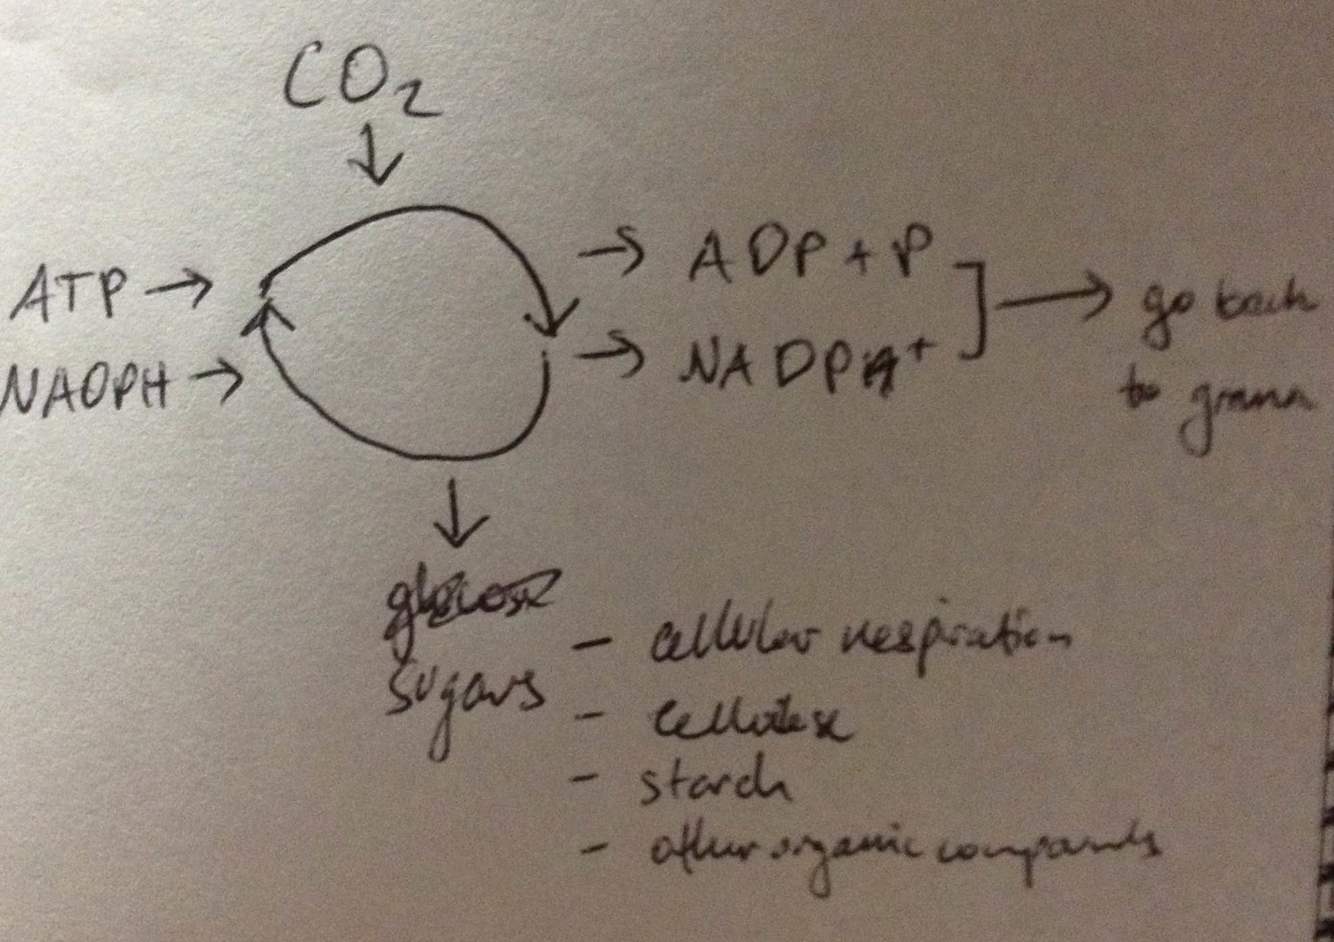 CO2
ATP →
NADPH →
→ ADP + P
→ NADP+
→ go back
to grana
glucose
sugars
- cellular respiration
- cellulose
- starch
- other organic compounds